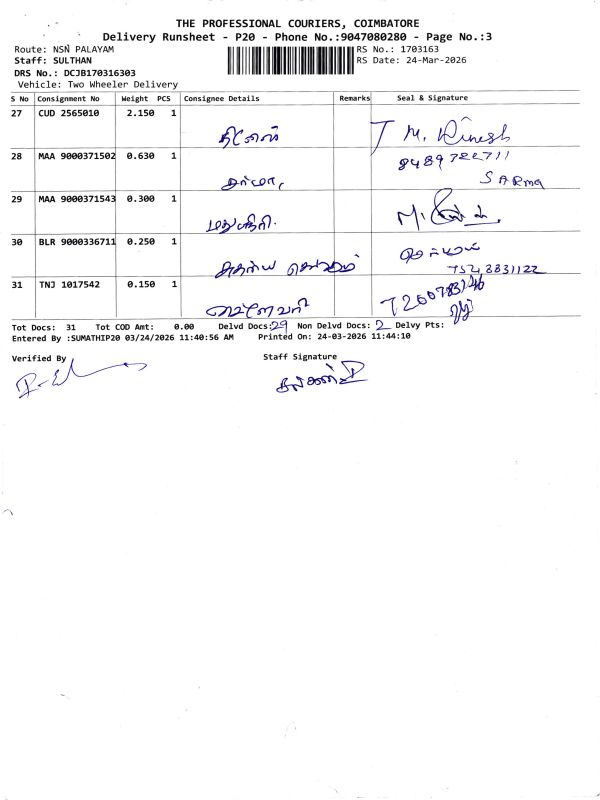 THE PROFESSIONAL COURIERS, COIMBATORE
Delivery Runsheet - P20 - Phone No.:9047080280 - Page No.:3
Route: NSN PALAYAM RS No.: 1703163
Staff: SULTHAN RS Date: 24-Mar-2026
DRS No.: DCJB170316303
Vehicle: Two Wheeler Delivery
S No Consignment No Weight PCS Consignee Details Remarks Seal & Signature
27 CUD 2565010 2.150 1
தினேஷ் T M. Dinesh
28 MAA 9000371502 0.630 1 8489722711
சர்மா, SARMA
29 MAA 9000371543 0.300 1
30 BLR 9000336711 0.250 1
7524 3831122
31 TNJ 1017542 0.150 1
Tot Docs: 31 Tot COD Amt: 0.00 Delvd Docs:29 Non Delvd Docs: 2 Delvy Pts:
Entered By :SUMATHIP20 03/24/2026 11:40:56 AM Printed On: 24-03-2026 11:44:10
Verified By Staff Signature